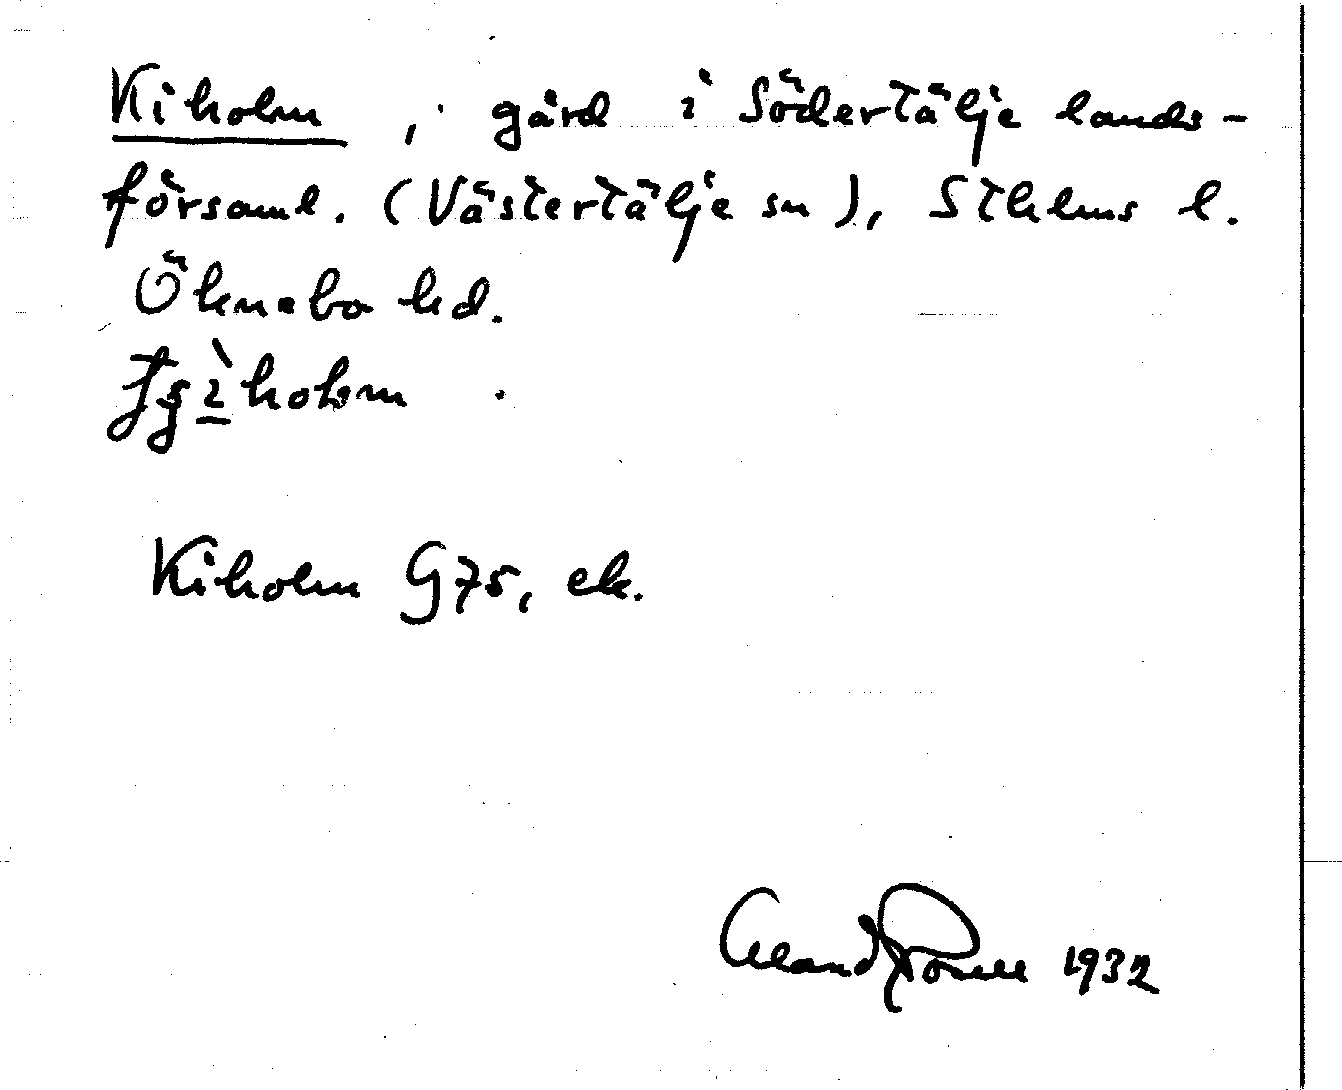 Kiholm, gård i Södertälje lands-
församl. (Västertälje sn), Sthlms l.
Öknebo hd.
holm
Kiholm G75, ek.
1932